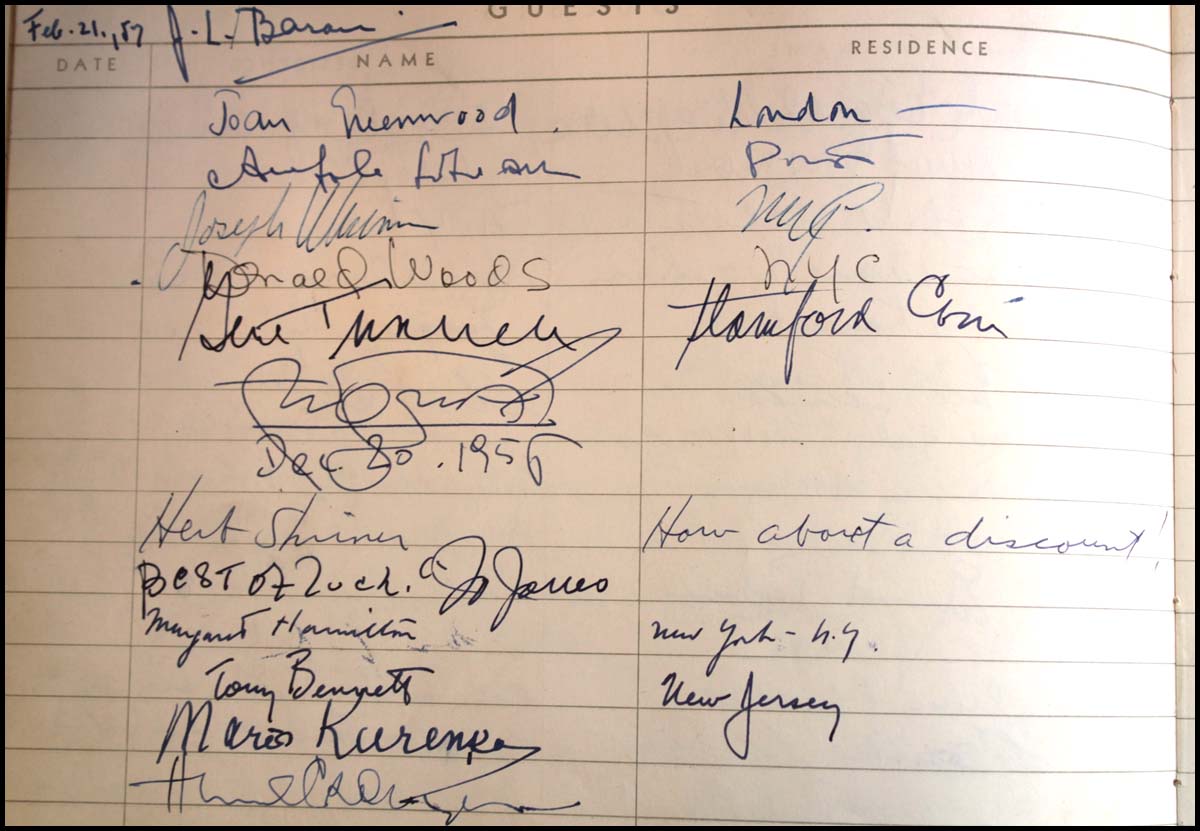 GUESTS
Feb. 21., 57 J. L. Baran
DATE NAME RESIDENCE
Joan Greenwood. London —
Joseph NYC.
Donald Woods NYC
Gene Tunney Stamford Conn
Dec. 20. 1956
Herb Shriner How about a discount!
Best of Luck. Jo Jones
Margaret Hamilton New York - N.Y.
Tony Bennett New Jersey
Maria Kurenko